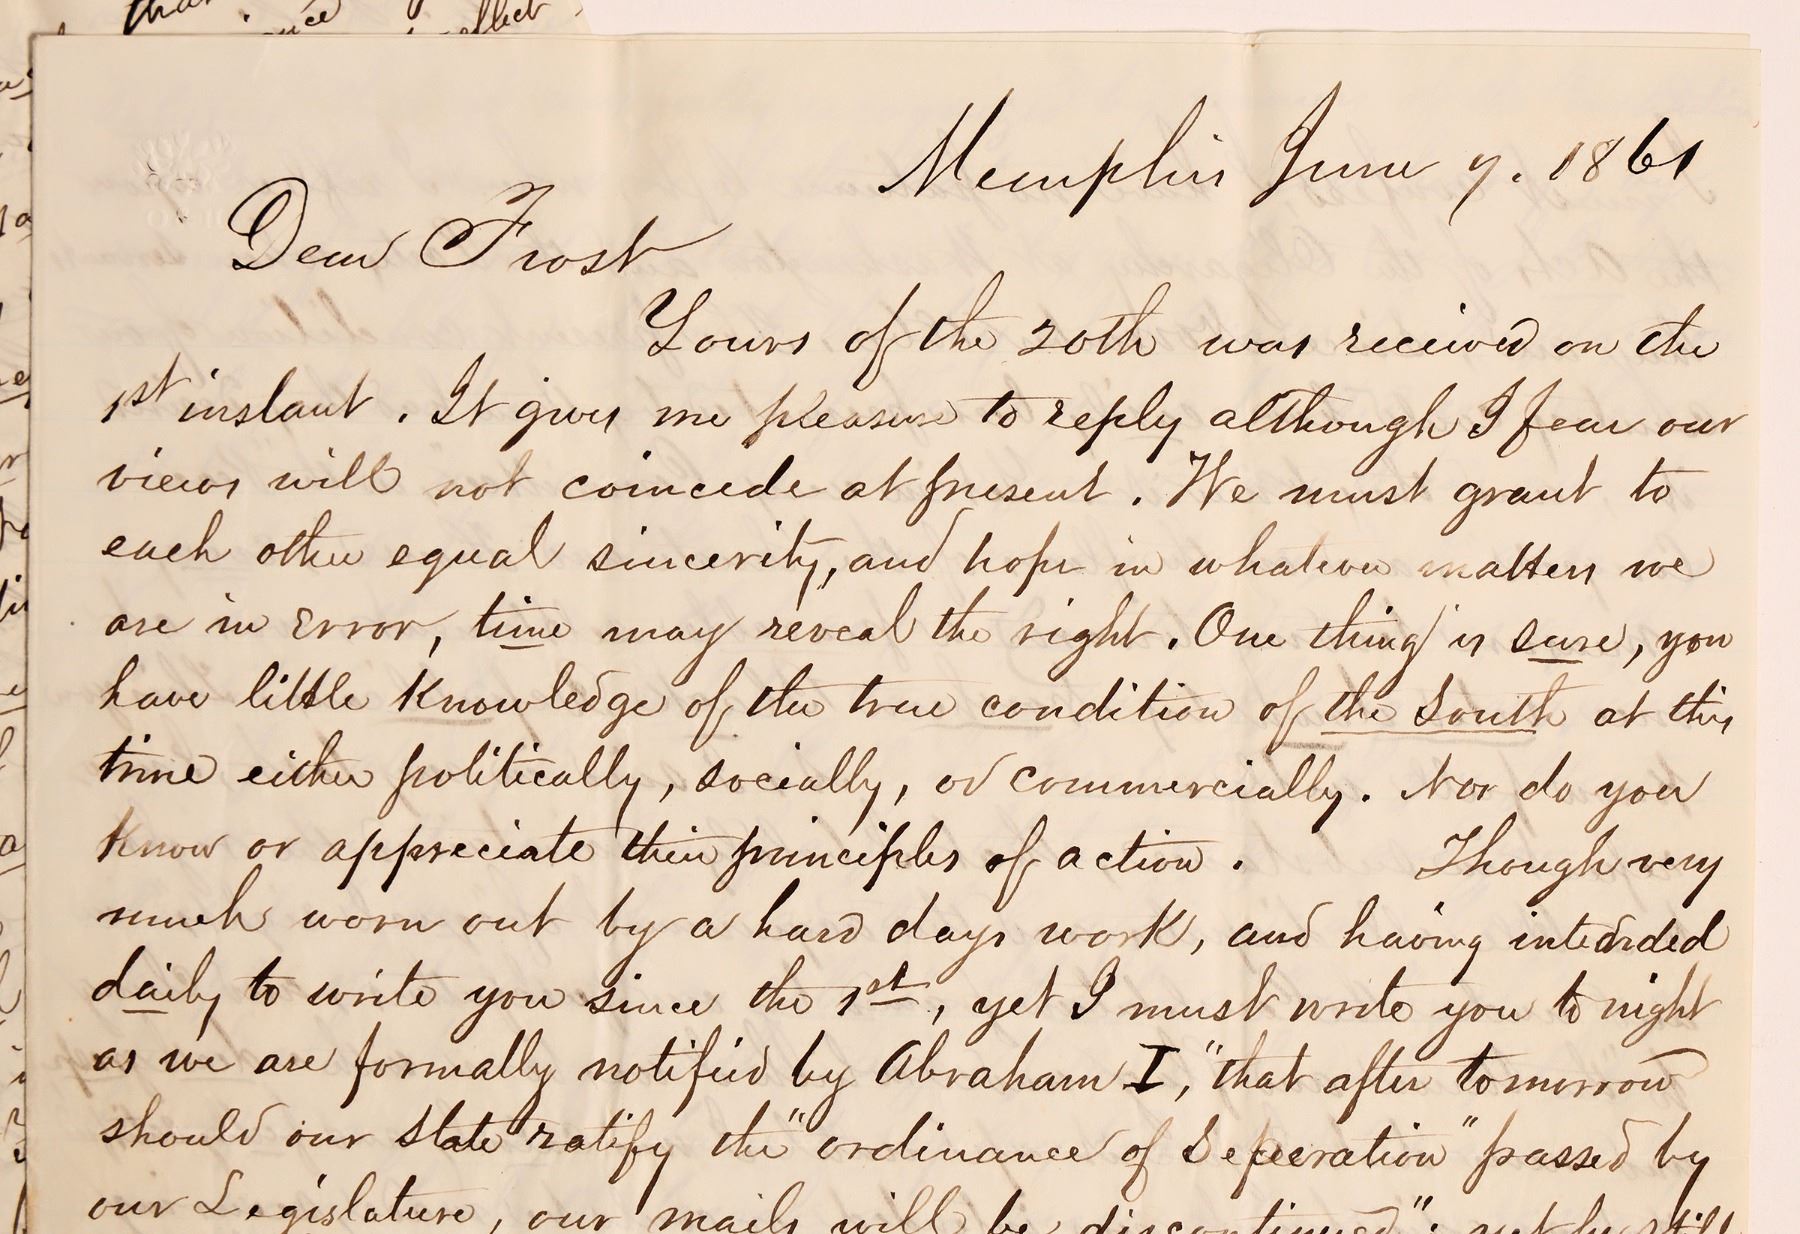 than
ence effect
Memphis June 7. 1861
Dear Frost
Yours of the 20th was received on the
1st instant. It gives me pleasure to reply although I fear our
views will not coincede at present. We must grant to
each other equal sincerity, and hope in whatever matters we
are in Error, time may reveal the right. One thing is sure, you
have little knowledge of the true condition of the South at this
time either politically, socially, or commercially. Nor do you
know or appreciate their principles of action. Though very
much worn out by a hard days work, and having intended
daily to write you since the 1st, yet I must write you to night
as we are formally notified by Abraham I, "that after tomorrow
should our state ratify the "ordinance of Seperation" passed by
our Legislature, our mails will be discontinued"; yet he still